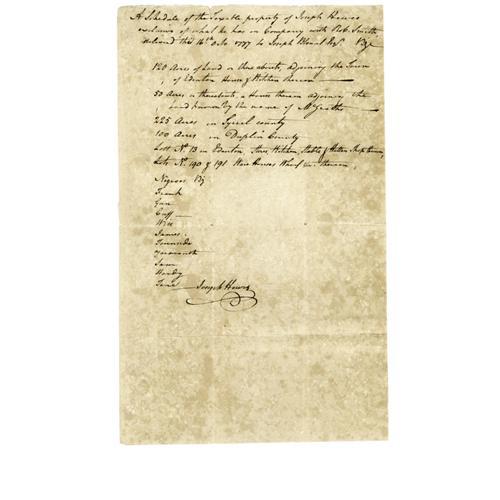 A Schedule of the Taxable property of Joseph Hewes
exclusive of what he has in Company with Rob. Smith
delivered the 16th Octo 1777 to Joseph Blount Esqr. Viz
120 Acres of Land or there abouts, adjoining the Town
of Edenton House & Kitchen thereon
50 Acres or thereabouts, a House thereon adjoining the
Land known by the name of
225 Acres in Tyrrel County
100 Acres in Duplin County
Lott No. 13 in Edenton, Store, Kitchen, Stable &
Lotts No. 190 & 191 Ware Houses Wharf &c. thereon
Negroes Viz
Frank
Cuff
Will
James
Yarmouth
Sam
Jane Joseph Hewes